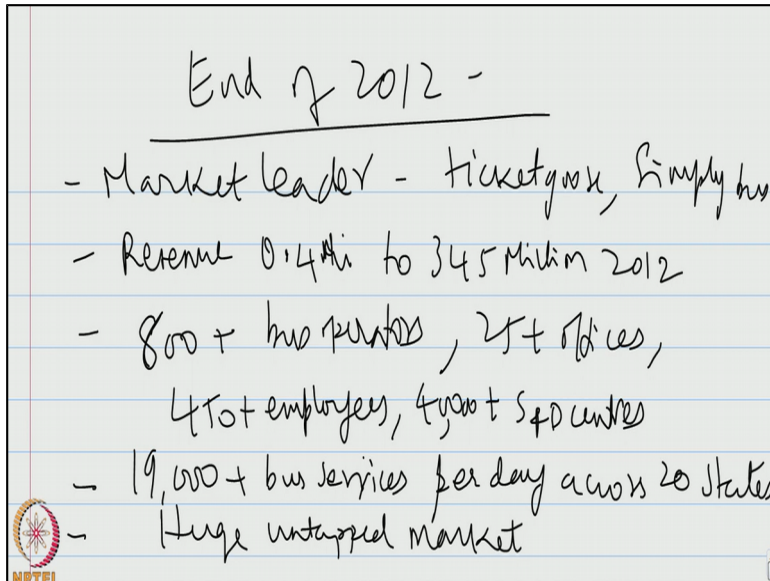 End of 2012 -
- Market leader - ticketgoose, Simply bus
- Revenue 0.4 Mi to 345 Million 2012
- 800+ bus operators, 25+ offices,
450+ employees, 4,000+ S&D centres
- 19,000+ bus services per day across 20 States
- Huge untapped market
NPTEL